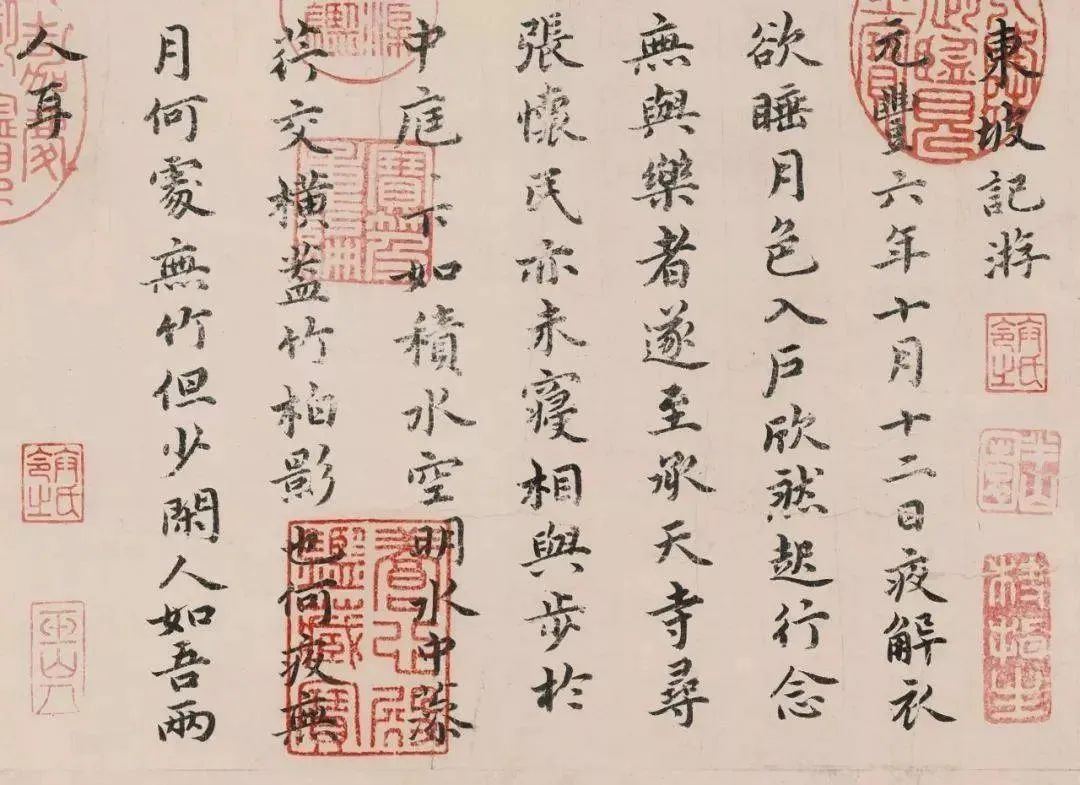 東坡記游
元豐六年十月十二日夜解衣
欲睡月色入戶欣然起行念
無與樂者遂至承天寺尋
張懷民亦未寢相與步於
中庭〻下如積水空明水中藻
荇交橫蓋竹柏影也何夜無
月何處無竹但少閑人如吾兩
人耳